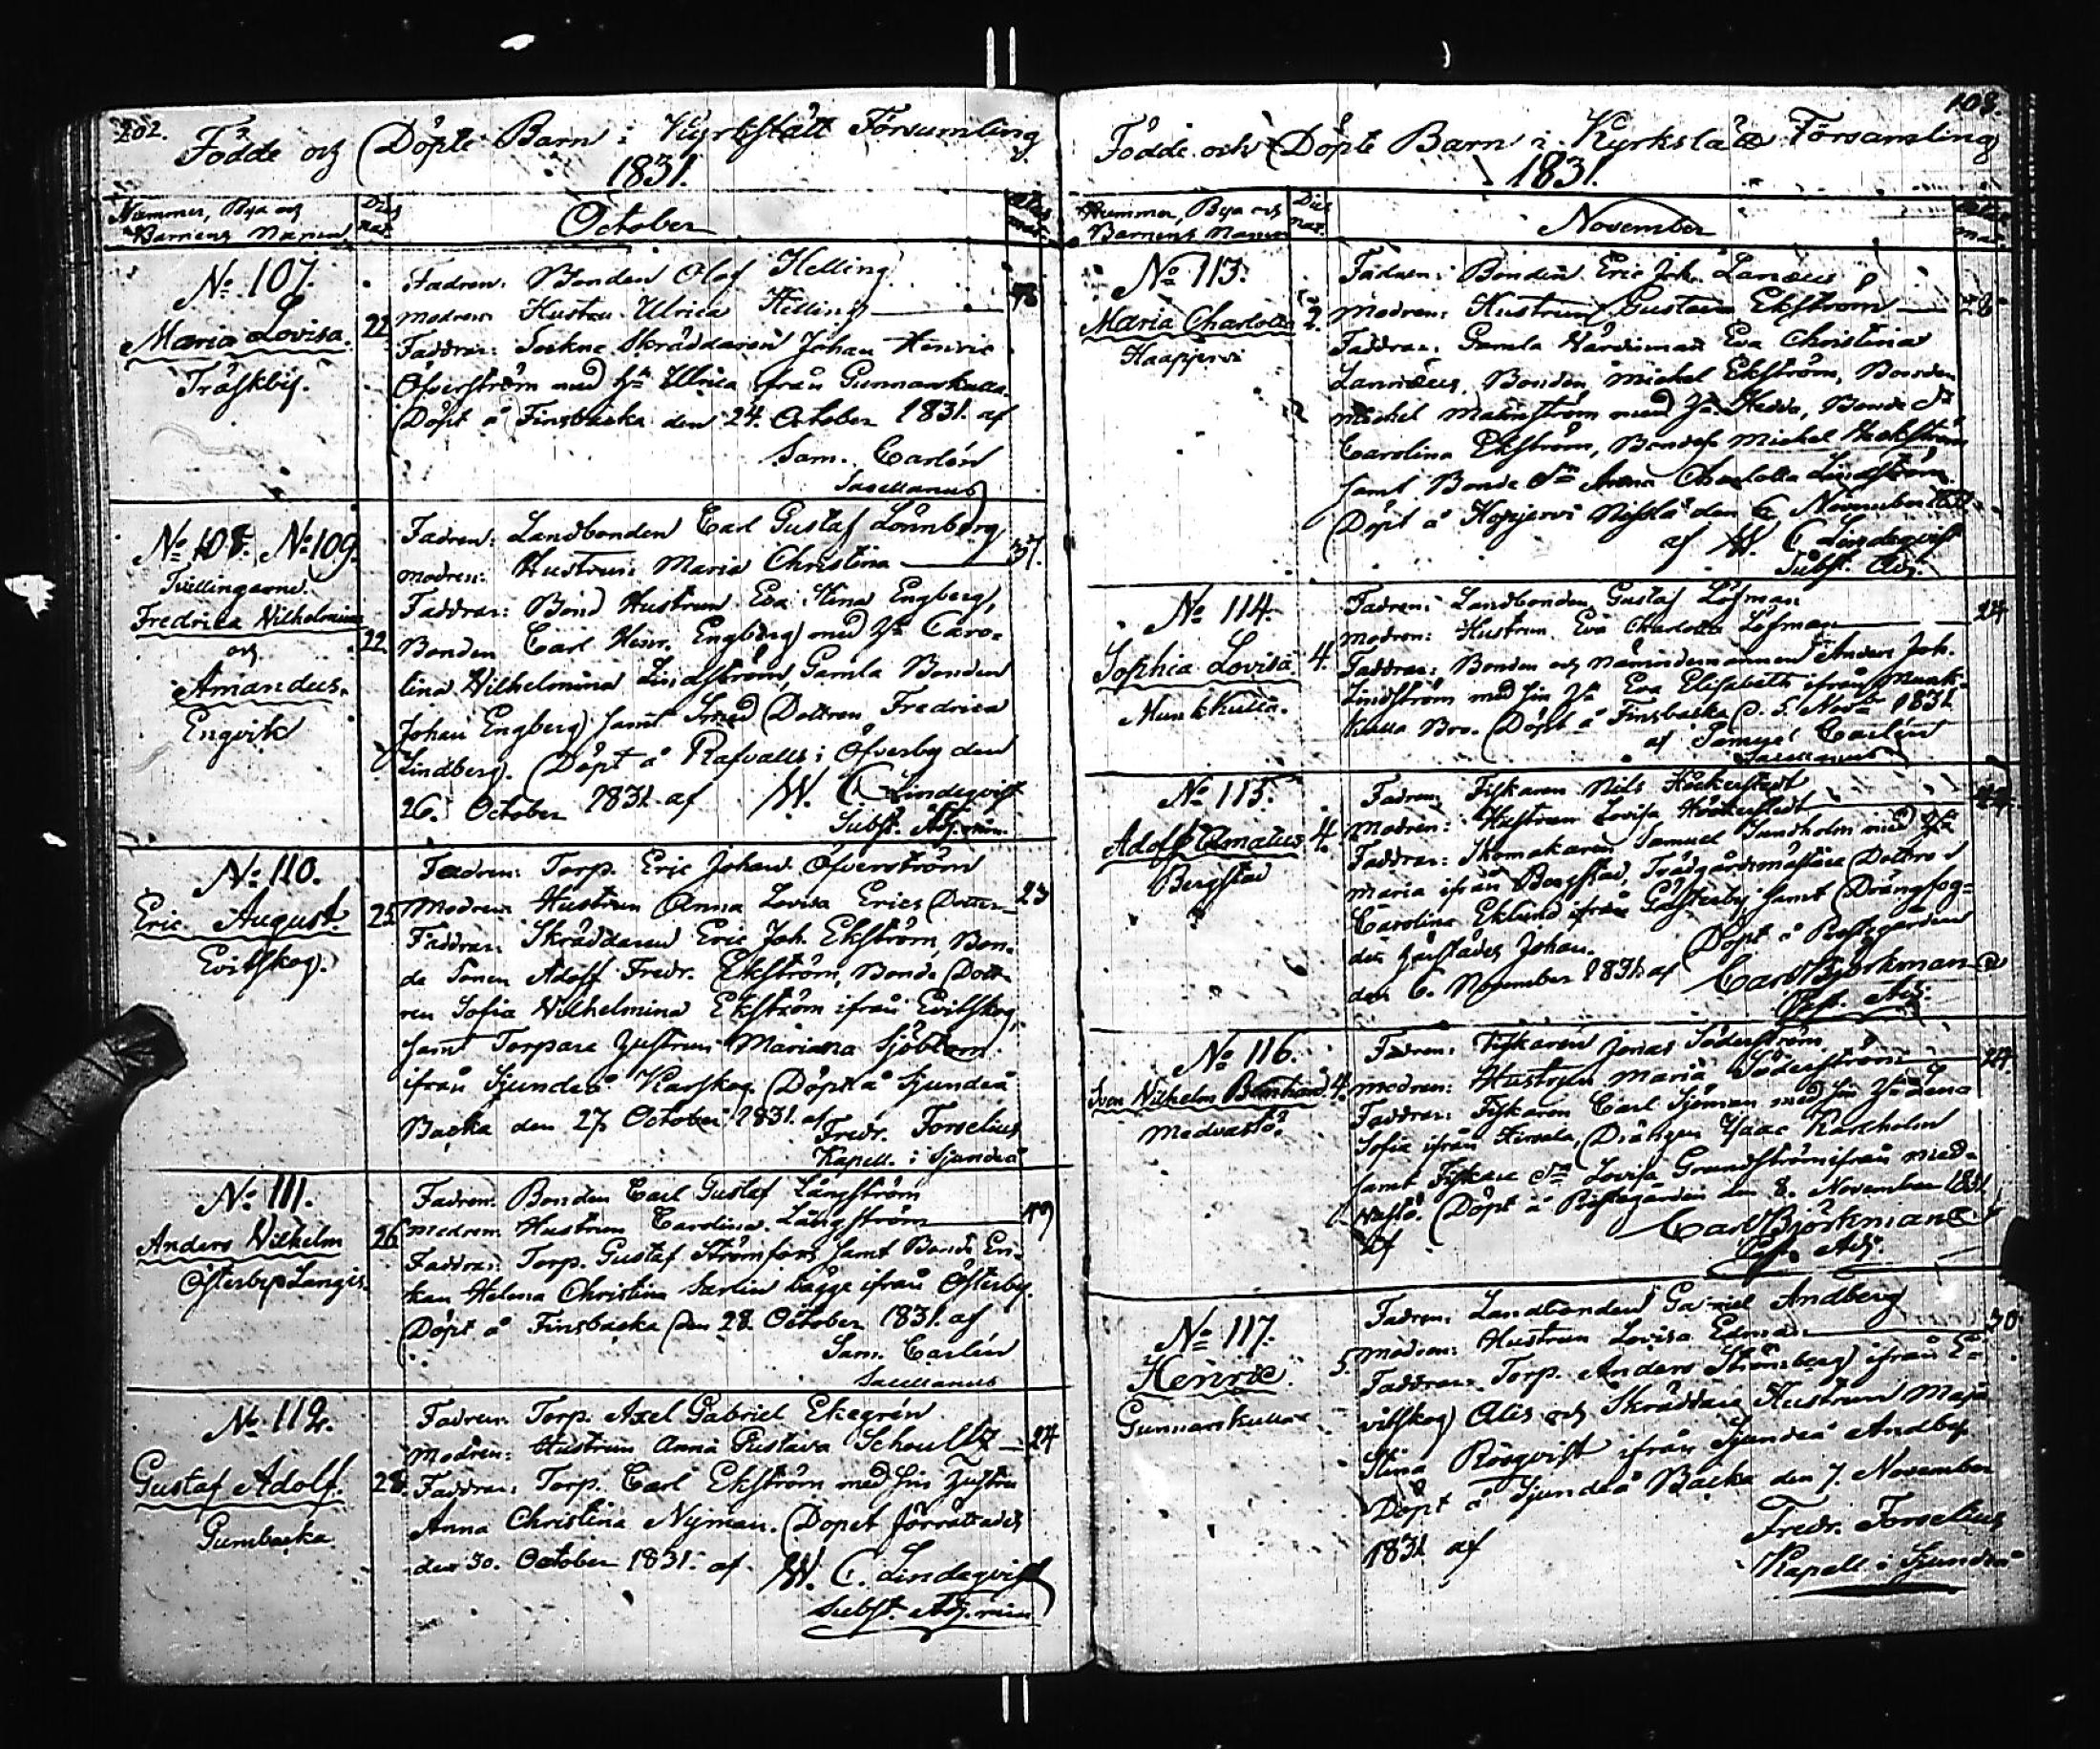 202.
Födde och Döpte Barn i Kyrkslätt Församling
1831.
Nummer, Bya och Barnens Namn
Dies nat.
October
Ætas mat.
No 107.
Maria Lovisa.
Träskby.
22
Fadren: Bonden Olof Helling
Modren: Hustru Ulrica Helling
Faddrar: Sockne Skräddaren Johan Henric
Öfverström med Hu Ulrica ifrån Gunnarskulla.
Döpt å Finsbacka den 24. October 1831. af
Sam. Carlén
Sacellanus
No 108. No 109.
Tvillingarne.
Fredrica Wilhelmina
och
Amandus.
Engvik
22.
Fadren: Landbonden Carl Gustaf Lönnberg
Modren: Hustrun Maria Christina
37.
Faddrar: Bond Hustrun Eva Stina Engberg,
Bonden Carl Henr. Engberg med Hu Caro-
lina Wilhelmina Lindström, Gamla Bonden
Johan Engberg samt Smed Dottren Fredrica
Lindberg. Döpt å Rafvalls i Öfverby den
26. October 1831 af W. C. Lindeqvist
Subst. Adj. min.
No 110.
Eric August.
Evitskog.
25
Fadren: Torp. Eric Johan Öfverström
Modren: Hustrun Anna Lovisa Erics Dotter
23
Faddrar: Skräddaren Eric Joh. Ekström, Bon-
de Sonen Adolf Fredr. Ekström, Bonde Dott-
ren Sofia Wilhelmina Ekström ifrån Evitskog,
samt Torpare Hustrun Mariana Sjöblom
ifrån Sjundeå Karskog. Döpt å Sjundeå
Backa den 27 October 1831. af
Fredr. Forselius
Kapell. i Sjundeå
No 111.
Anders Wilhelm
Österby Langis.
26
Fadren: Bonden Carl Gustaf Långström
Modren: Hustrun Carolina Långström
Faddrar: Torp. Gustaf Strömfors samt Bonde En-
kan Helena Christina Sarlin bägge ifrån Österby.
Döpt å Finsbacka den 28. October 1831. af
Sam. Carlén
Sacellanus
No 112.
Gustaf Adolf.
Gumbacka
28.
Fadren: Torp. Axel Gabriel Ekegrén
Modren: Hustrun Anna Gustava Schoultz
24
Faddrar: Torp. Carl Ekström med sin Hustru
Anna Christina Nyman. Döpet förrättades
den 30. October 1831. af W. C. Lindeqvist
Subst. Adj. min
108.
Födde och Döpte Barn i Kyrkslätt Församling
1831.
Nummer, Bya och Barnens Namn
Dies nat.
November
Ætas mat.
No 113.
Maria Charlotta
Haapjervi
2.
Fadren: Bonden Eric Joh. Lanæus
Modren: Hustrun Gustava Ekström
28
Faddrar: Gamla Värdinnan Eva Christina
Lanæus, Bonden Michel Ekström, Bonden
Michel Malmström med Hu Hedda, Bonde Dr
Carolina Ekström, Bondes. Michel
samt Bonde Dn Anna Charlotta Lindström.
Döpt å Hapjervi den 6 November 1831.
af W. C. Lindeqvist
Subst. Adj.
No 114.
Sophia Lovisa
Munkkulla.
4.
Fadren: Landbonden Gustaf Löfman
Modren: Hustrun Eva Charlotta Löfman
24
Faddrar: Bonden och Nämndemannen Anders Joh.
Lindström med sin Hu Eva Elisabeth ifrån Munk-
kulla Bro. Döpt å Finsbacka d. 5. Novbr 1831
af Samuel Carlén
Sacellanus
No 115.
Adolf Amatus
Bergstad
4.
Fadren: Fiskaren Nils Höckerstedt
Modren: Hustrun Lovisa Höckerstedt
Faddrar: Skomakaren Samuel Sundholm med Hu
Maria ifrån Bergstad, Trädgårdsmästare Dottren
Carolina Eklund ifrån Gästerby samt Drängfog-
den Johan. Döpt å Prestegården
den 6. November 1831. af Carl Björkman
Adj.
No 116.
Sven Wilhelm Bernhard
Medvastö.
4.
Fadren: Fiskaren Jonas Söderström
Modren: Hustrun Maria Söderström
24.
Faddrar: Fiskaren Carl Sjöman med sin Hu Lena
Sofia ifrån Hirsala, Drängen Isaac Karlholm
samt Fiskare Dn Lovisa Grundström ifrån Med-
vastö. Döpt å Prestegården den 8. November 1831
af Carl Björkman
Adj.
No 117.
Henric.
Gunnarskulla
5.
Fadren: Landbonden Gabriel Andberg
Modren: Hustrun Lovisa Edman
30
Faddrar: Torp. Anders Strömberg ifrån E-
vitskog Alis och Skräddare Hustrun Maja
Stina Rösqvist ifrån Sjundeå Andby.
Döpt å Sjundeå Backa den 7. November
1831 af
Fredr. Forselius
Kapell. i Sjundeå